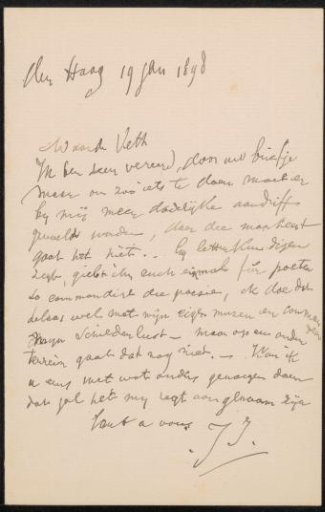 den Haag 19 jan 1898
Waarde Veth
Ik ben zeer vereerd, door uw briefje
maar om zoo iets te doen moet er
bij mij meer dadelijke aandrift
gevoeld worden, door die man heut
gaat het niet... bij letterkundigen
zegt, giebt ihr euch einmal für poeten
so commandirt die poesie, ik doe dat
helaas wel met mijn eigen muzen en
mijn schilderlust — maar op een ander
terrein gaat dat nog niet. — Kan ik
u eens met wat anders genoegen doen
dan zal het mij regt aangenaam zijn
tout a vous
J I.